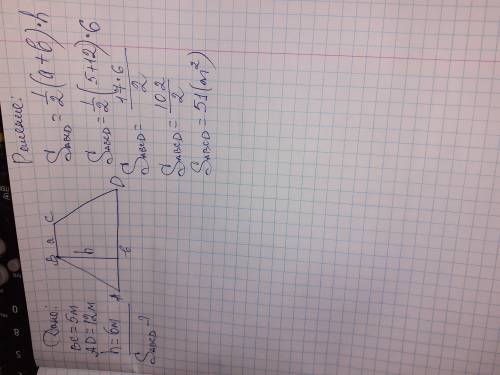 Дано:
BC = 5м
AD = 12м
h = 6м
S_ABCD - ?
B a C
h
A b D
Решение:
S_ABCD = 1/2 (a + b) · h
S_ABCD = 1/2 (5 + 12) · 6
S_ABCD = 17 · 6 / 2
S_ABCD = 102 / 2
S_ABCD = 51 (м²)